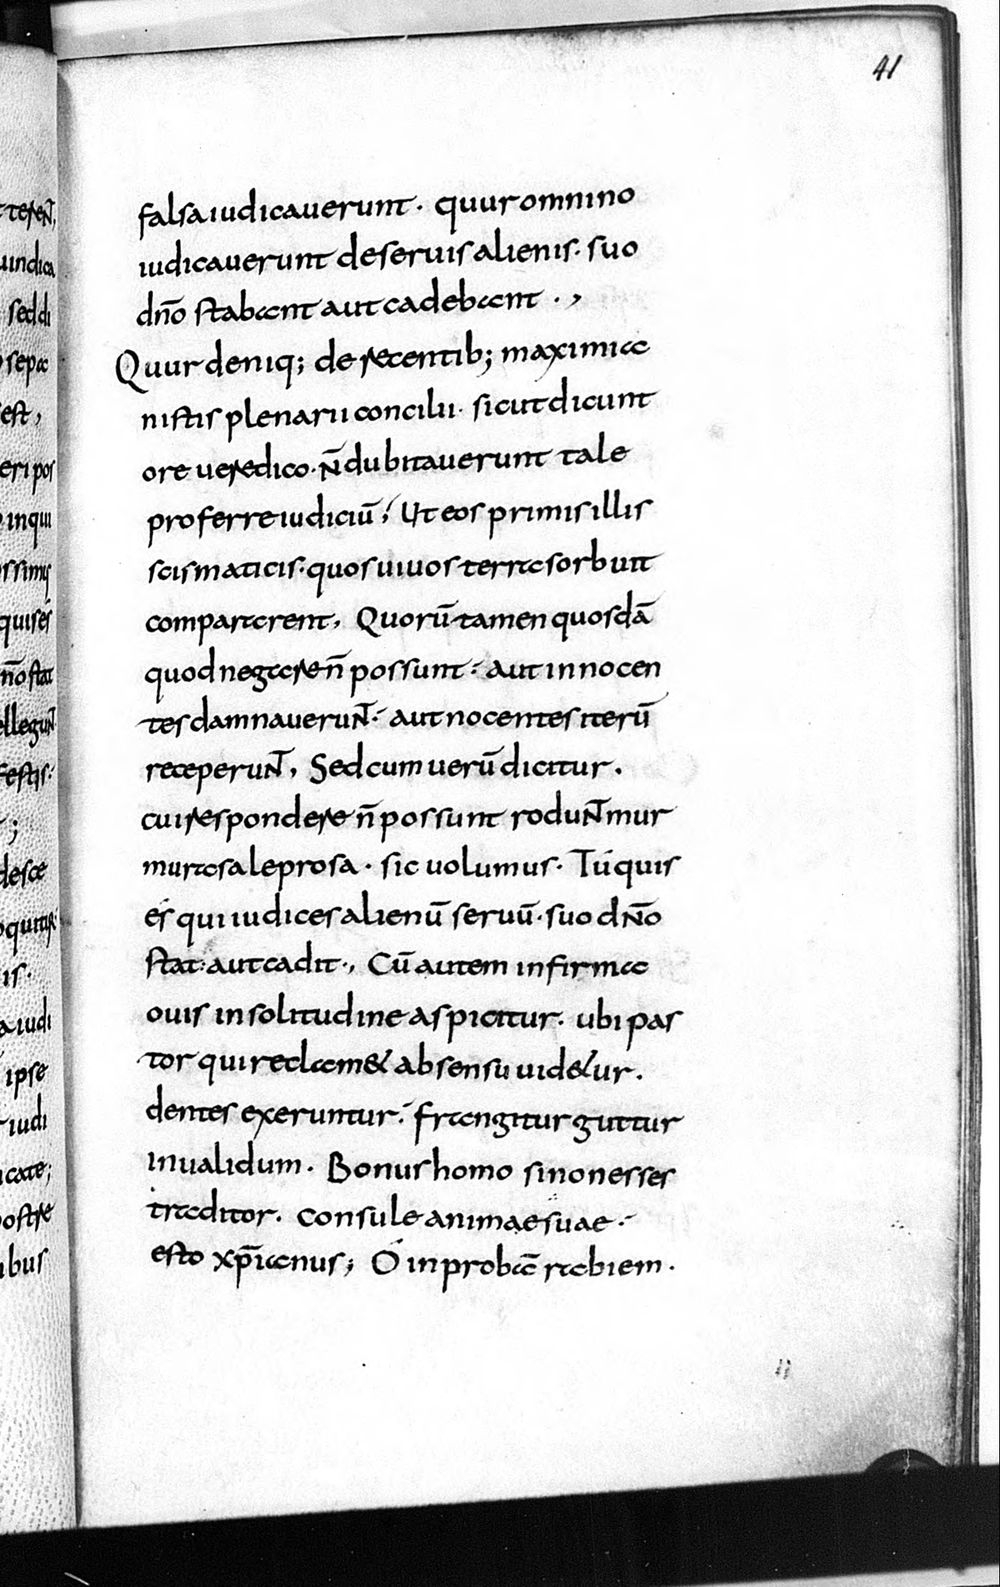 41
falsa iudicauerunt · quur omnino
iudicauerunt de seruis alienis · suo
dño stabant aut cadebant · ,
Quur deniq; de recentib; maximia
nistis plenarii concilii · sicut dicunt
ore ueredico · ñ dubitauerunt tale
proferre iudiciū ; Ut eos primis illis
scismaticis · quos uiuos terra sorbuit
compararent , Quorū tamen quosdā
quod negare ñ possunt · aut innocen
tes damnauerunt · aut nocentes iterū
receperunt , Sed cum uerū dicitur ·
cui respondere ñ possunt rodunt mur
mura saleprosa · sic uolumus · Tú quis
és qui iudices alienū seruū · suo dño
stat · aut cadit · , Cū autem infirma
ouis in solitudine aspicitur · ubi pas
tor qui reclam& absensu uid&ur ·
dentes exeruntur · frangitur guttur
inualidum · Bonus homo si non esses
traditor · consule animae suae ·
esto xp̄ianus ; Ó inprobā rabiem ·
t teren̄,
uindica
sed di
sepa
est ,
eri pos
inqui
ssimis
quis és
ño stat
ellegunt
festis ·
;
desce
is ·
a iudi
ipse
iudi
icate ;
ostre
ibus